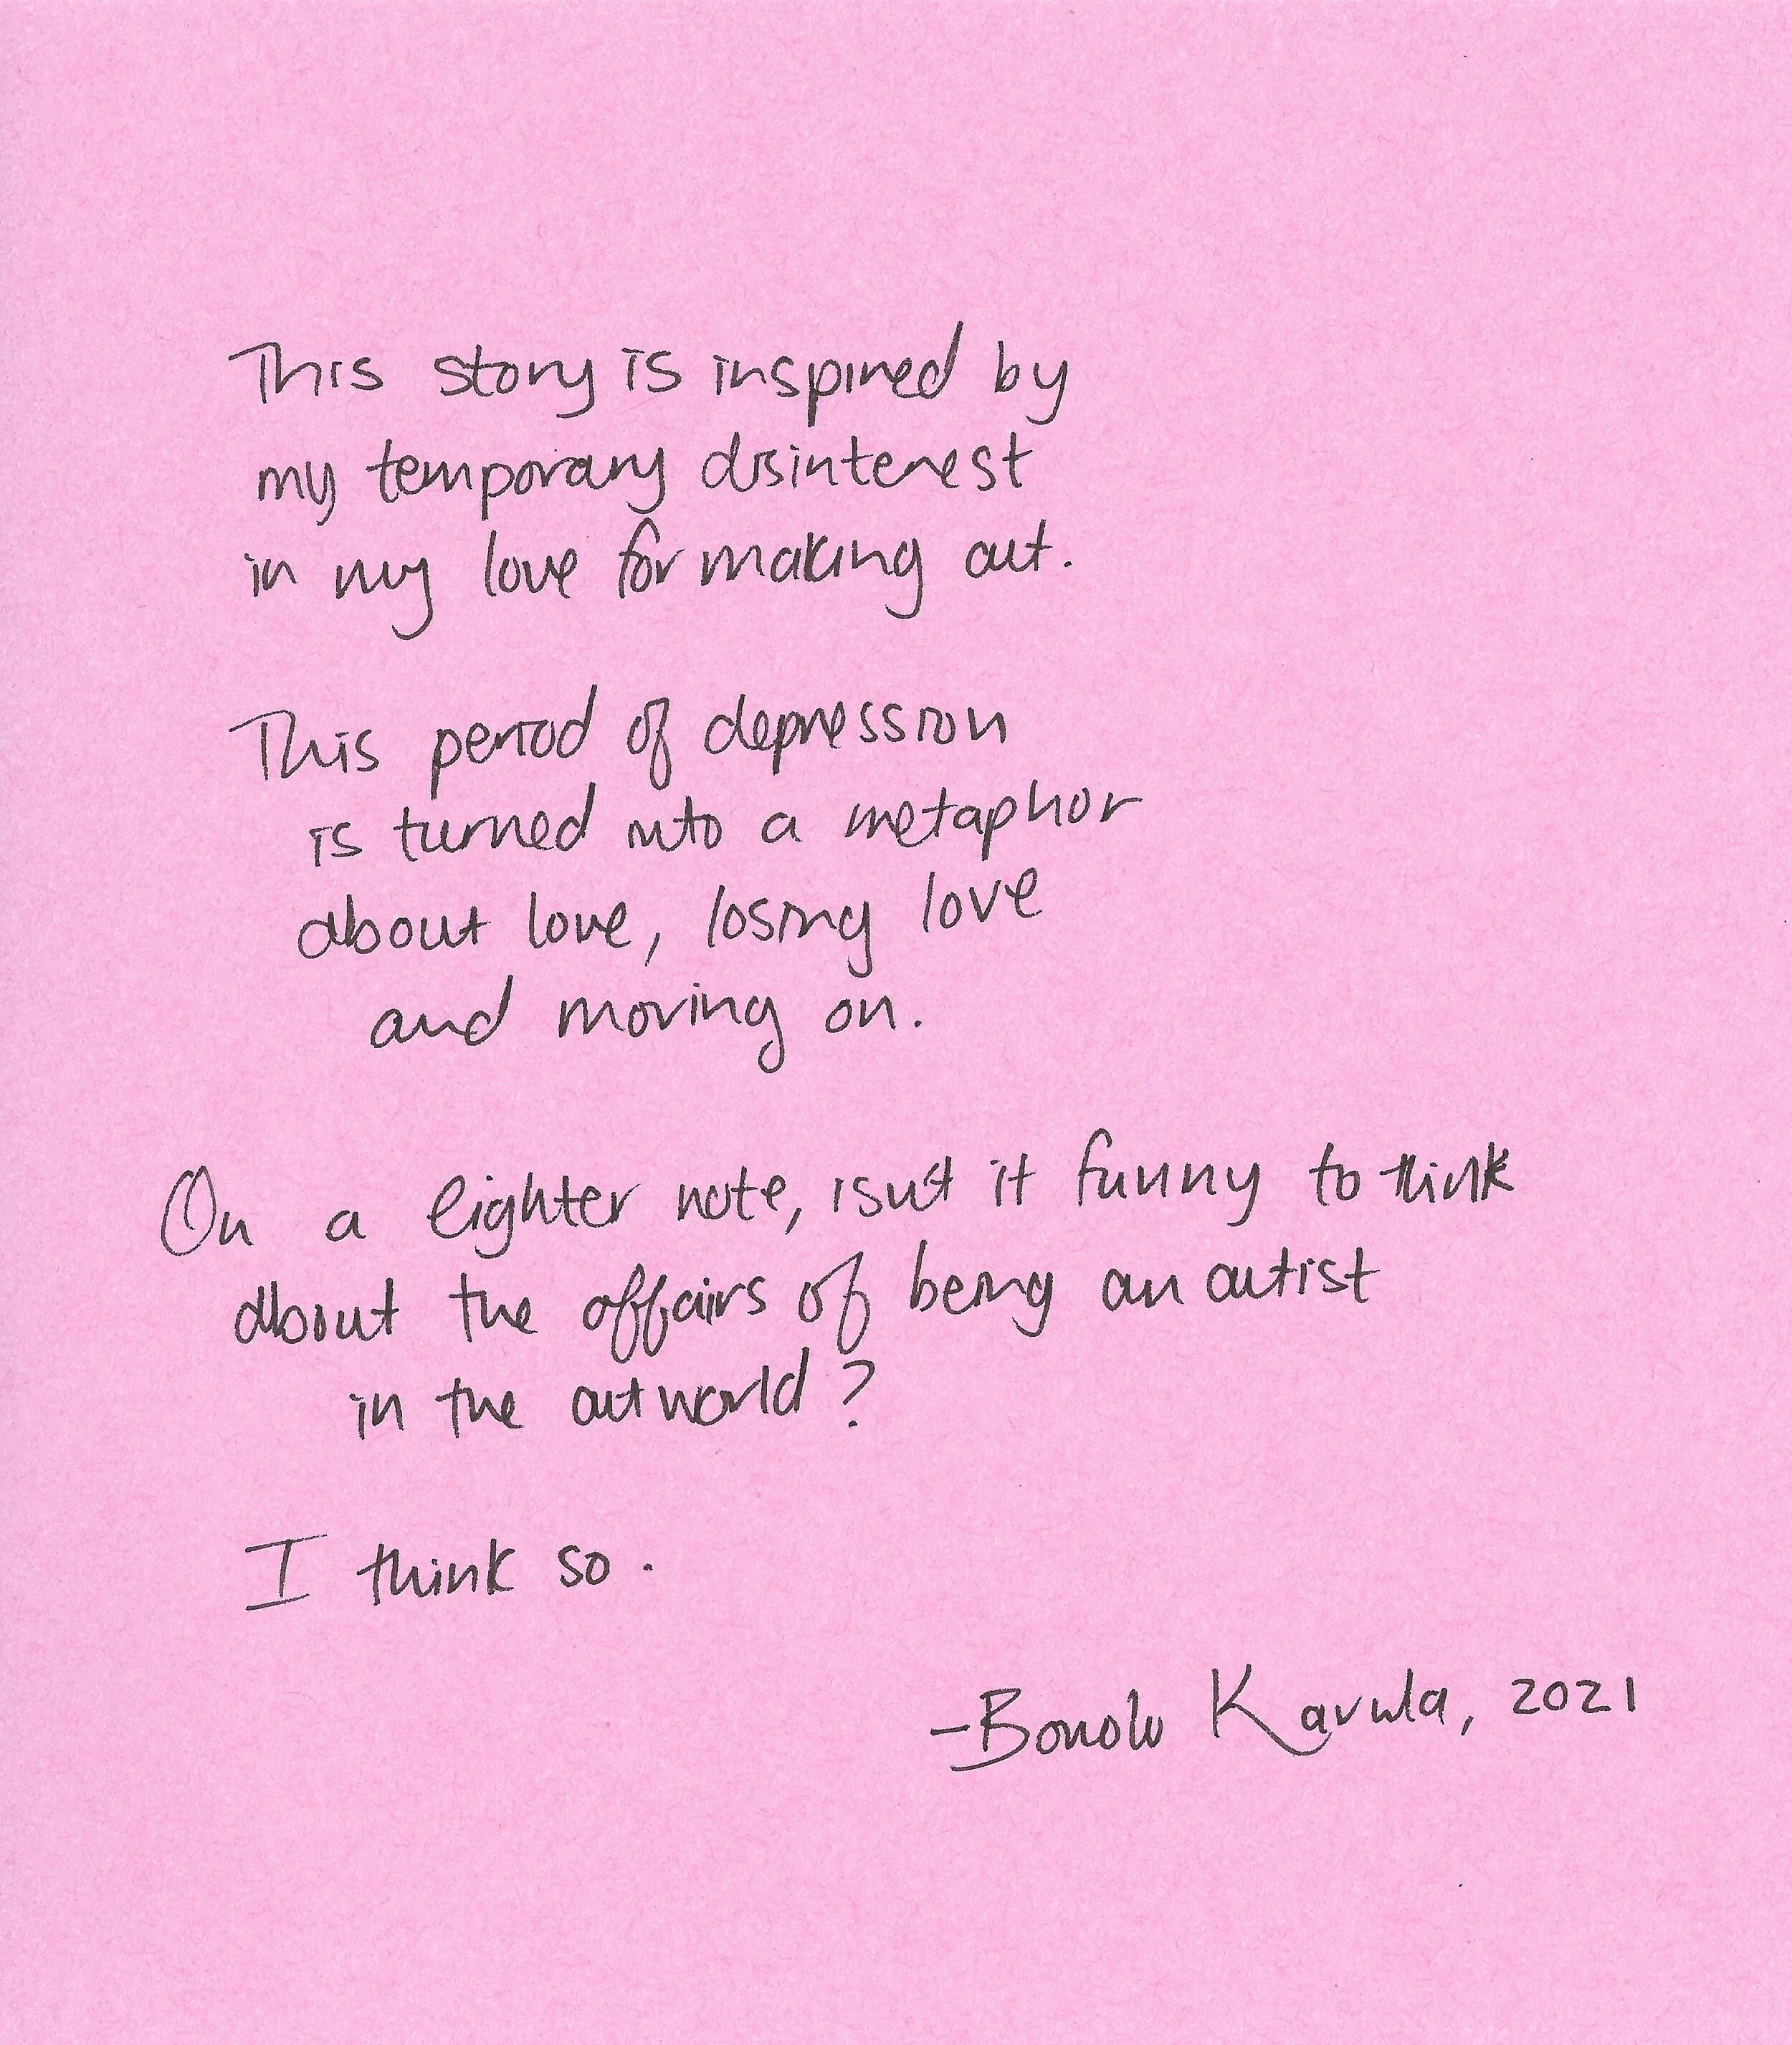 This story is inspired by
my temporary disinterest
in my love for making art.
This period of depression
is turned into a metaphor
about love, losing love
and moving on.
On a lighter note, isn't it funny to think
about the affairs of being an artist
in the artworld?
I think so.
–Bonolo Kavula, 2021